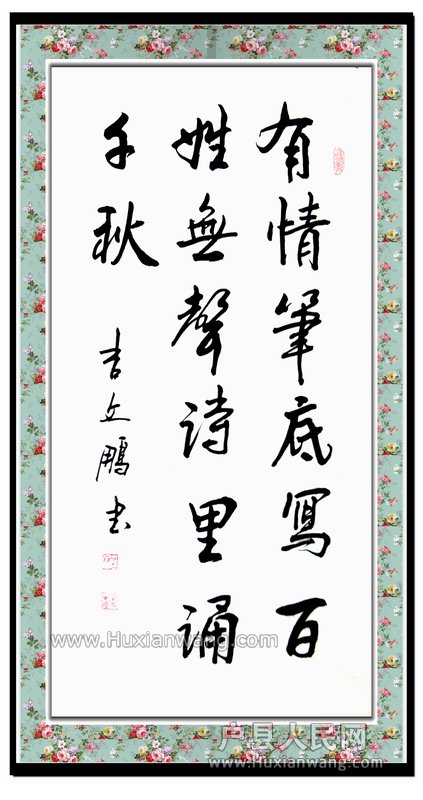 有情筆底寫百
姓無聲诗里诵
千秋
吉鵬书
www.Huxianwang.com
户县人民网
www.Huxianwang.com